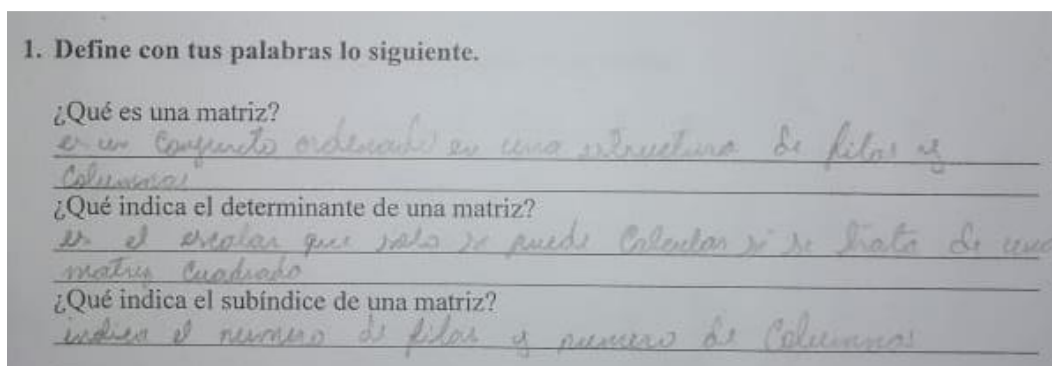 1. Define con tus palabras lo siguiente.
¿Qué es una matriz?
es un conjunto ordenado en una estructura de filas y
columnas
¿Qué indica el determinante de una matriz?
es el escalar que solo se puede calcular si se trata de una
matriz cuadrado
¿Qué indica el subíndice de una matriz?
indica el numero de filas y numero de columnas